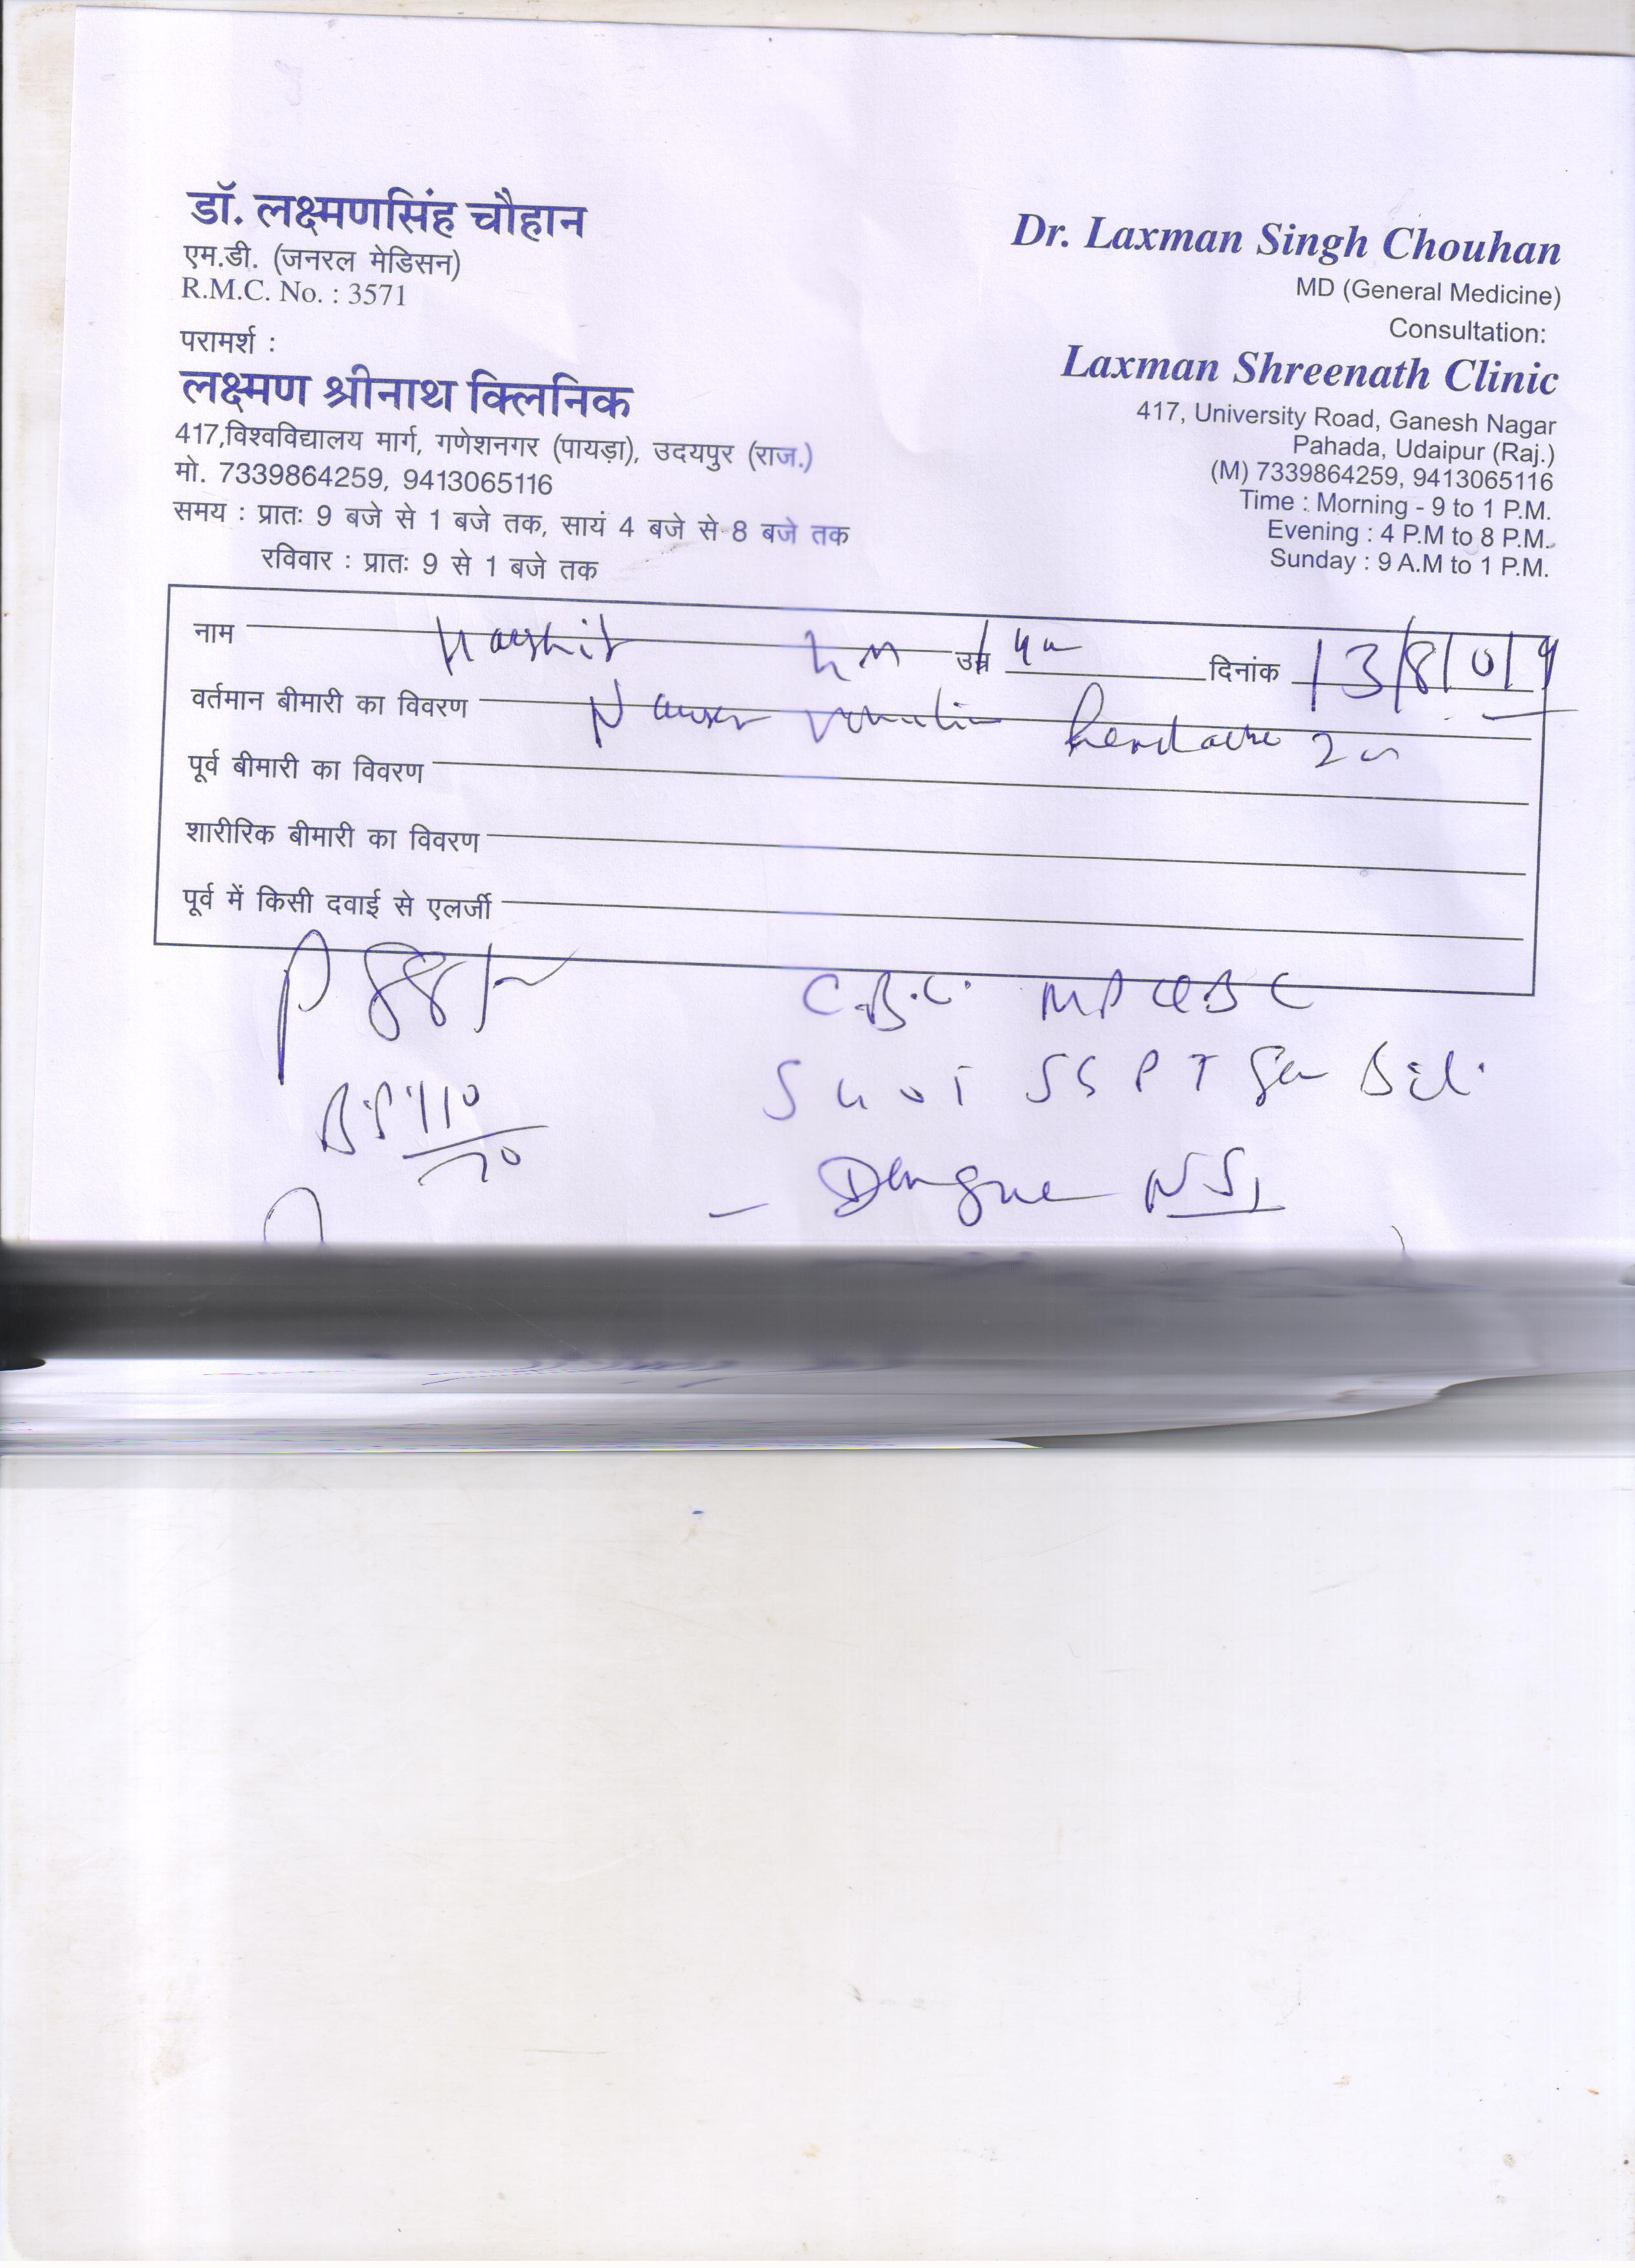 डॉ. लक्ष्मणसिंह चौहान
एम.डी. (जनरल मेडिसन)
R.M.C. No. : 3571
परामर्श :
लक्ष्मण श्रीनाथ क्लिनिक
417,विश्वविद्यालय मार्ग, गणेशनगर (पायड़ा), उदयपुर (राज.)
मो. 7339864259, 9413065116
समय : प्रातः 9 बजे से 1 बजे तक, सायं 4 बजे से 8 बजे तक
रविवार : प्रातः 9 से 1 बजे तक
Dr. Laxman Singh Chouhan
MD (General Medicine)
Consultation:
Laxman Shreenath Clinic
417, University Road, Ganesh Nagar
Pahada, Udaipur (Raj.)
(M) 7339864259, 9413065116
Time : Morning - 9 to 1 P.M.
Evening : 4 P.M to 8 P.M.
Sunday : 9 A.M to 1 P.M.
नाम Harshit उम्र दिनांक 13/8/019
वर्तमान बीमारी का विवरण Nausea headache
पूर्व बीमारी का विवरण
शारीरिक बीमारी का विवरण
पूर्व में किसी दवाई से एलर्जी
P 88/-
C.B.C. MP QBC
B.P. 110/70
- Dengue NS1